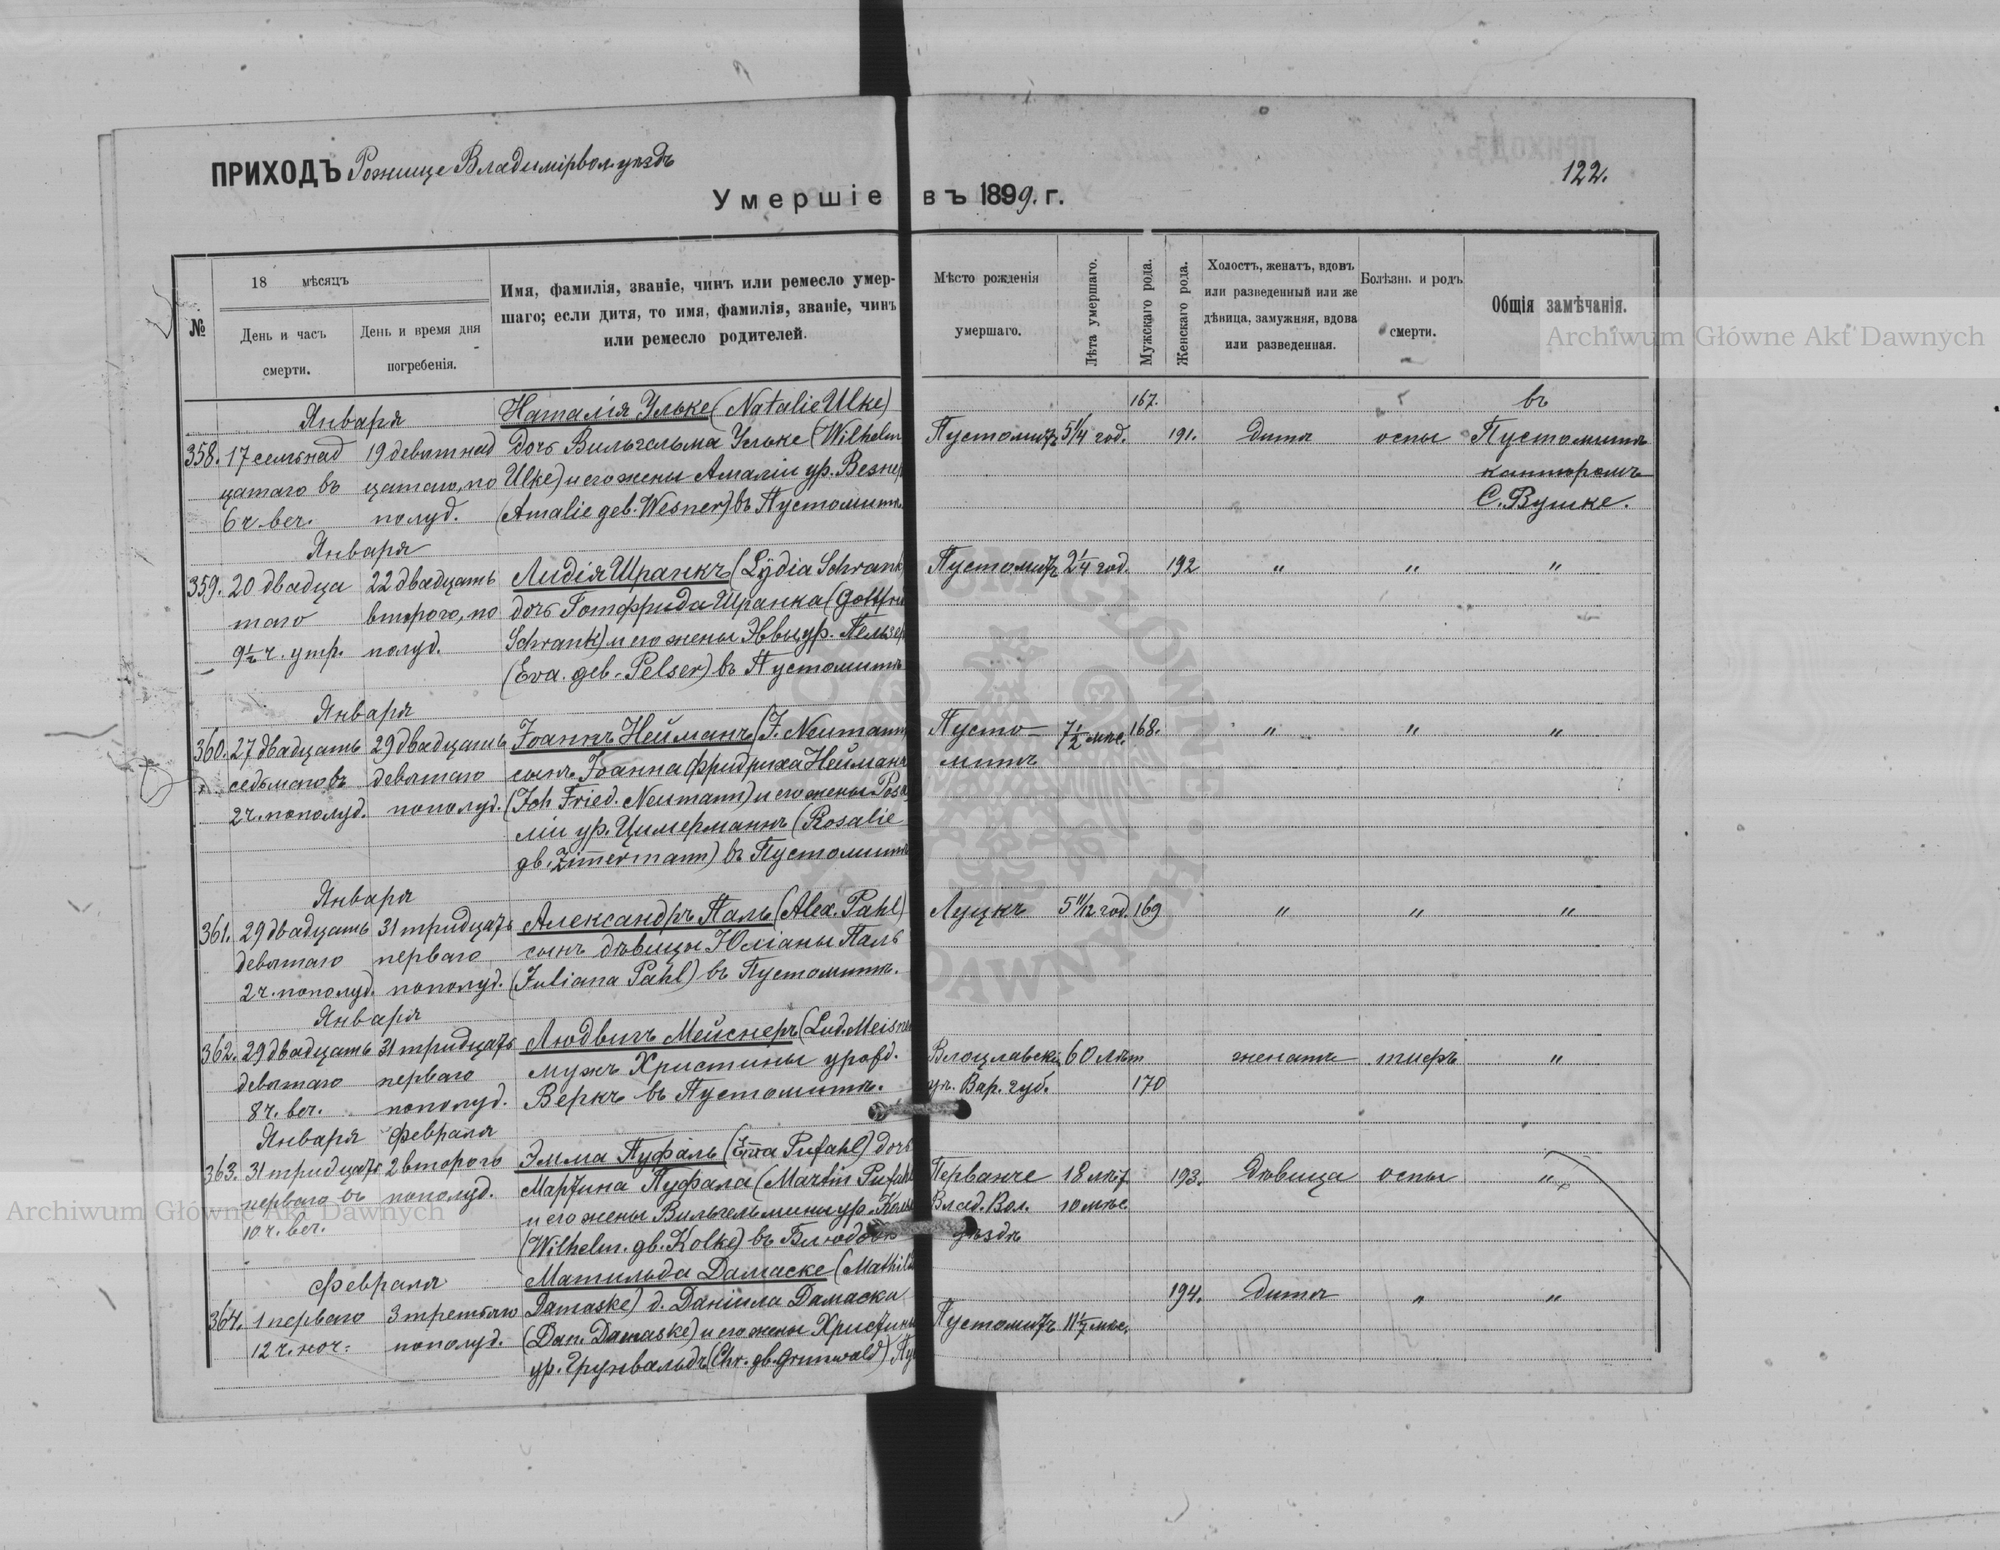 ПРИХОДЪ Рожище Владимірвол. уѣздъ
122.
Умершіе въ 1899. г.
№
18 мѣсяцъ
День и часъ смерти.
День и время дня погребенія.
Имя, фамилія, званіе, чинъ или ремесло умер-
шаго; если дитя, то имя, фамилія, званіе, чинъ
или ремесло родителей.
Мѣсто рожденія умершаго.
Лѣта умершаго.
Мужскаго рода.
Женскаго рода.
Холостъ, женатъ, вдовъ
или разведенный или же
дѣвица, замужняя, вдова
или разведенная.
Болѣзнь и родъ смерти.
Общія замѣчанія.
Января Наталія Ульке (Natalie Ulke) 167. въ
358. 17 семнад 19 девятнад дочь Вильгельма Ульке (Wilhelm Пустомытъ 5 1/4 год. 191. дитя оспы Пустомитѣ
цатаго въ цатаго, по Ulke) и его жены Амаліи ур. Везнер канторомъ
6 ч. веч. полуд. (Amalie geb. Wesner) въ Пустомытѣ С. Вушке.
Января
359. 20 двадца 22 двадцать Лидія Шранкъ (Lÿdia Schrank Пустомытъ 2 1/4 год. 192 " " "
таго второго, по дочь Готфрида Шранка (Gottfri
9 1/2 ч. утр. полуд. Schrank) и его жены Эввы ур. Пельзер
(Eva geb. Pelser) въ Пустомытѣ
Января
360. 27 двадцать 29 двадцать Іоаннъ Нейманъ (J. Neumann Пусто- 7 1/2 мѣс. 168. " " "
седьмаго въ девятаго сынъ Іоанна Фридриха Нейманъ мытъ
2 ч. пополуд. пополуд. (Joh Fried. Neumann) и его жены Роза
ліи ур. Цимерманъ (Rosalie
gb. Zimermann) въ Пустомытѣ
Января
361. 29 двадцать 31 тридцать Александръ Паль (Alex. Pahl) Луцкъ 5 11/12 год. 169 " " "
девятаго перваго сынъ дѣвицы Юліаны Паль
2 ч. пополуд. пополуд. (Juliana Pahl) въ Пустомытѣ.
Января
362. 29 двадцать 31 тридцать Людвигъ Мейснеръ (Lud. Meisne Влоцлавскій 60 лѣт женатъ тифъ "
девятаго перваго мужъ Христины урожд. уѣ. Вар. губ. 170
8 ч. веч. пополуд. Веркъ въ Пустомытѣ.
Января Февраля
363. 31 тридцать 2 второго Эмма Пуфаль (Ema Pufahl) дочь
перваго въ пополуд. Мартина Пуфаля (Martin Pufahl Перванче 18 лѣт 193. дѣвица оспы "
10 ч. веч. и его жены Вильгельмины ур. Кольк Влад. Вол. 10 мѣс.
(Wilhelm. gb. Kolke) въ уѣздѣ
Февраля Матильда Дамаске (Mathild
364. 1 перваго 3 третьяго Damaske) д. Даніила Дамаска 194. дитя " "
12 ч. ноч. пополуд. (Dan. Damaske) и его жены Христины Пустомытъ 11 1/2 мѣс.
ур. Грунвальдъ (Chr. gb. Grunwald) Пу
Archiwum Główne Akt Dawnych
Archiwum Główne Akt Dawnych